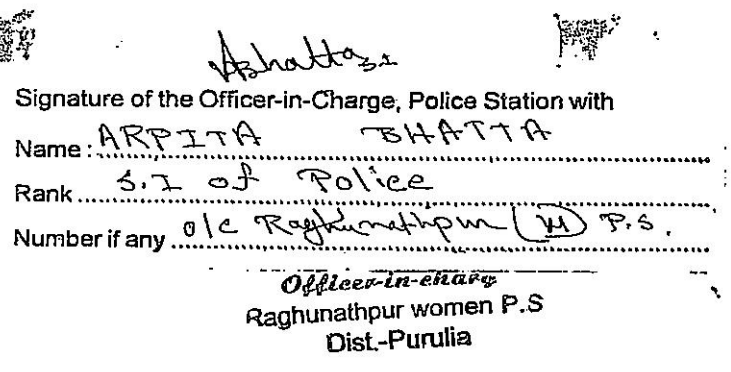 ABhatta SI
Signature of the Officer-in-Charge, Police Station with
Name : ARPITA BHATTA
Rank S.I of Police
Number if any o/c Raghunathpur (W) P.S.
Officer-in-charg
Raghunathpur women P.S
Dist.-Purulia